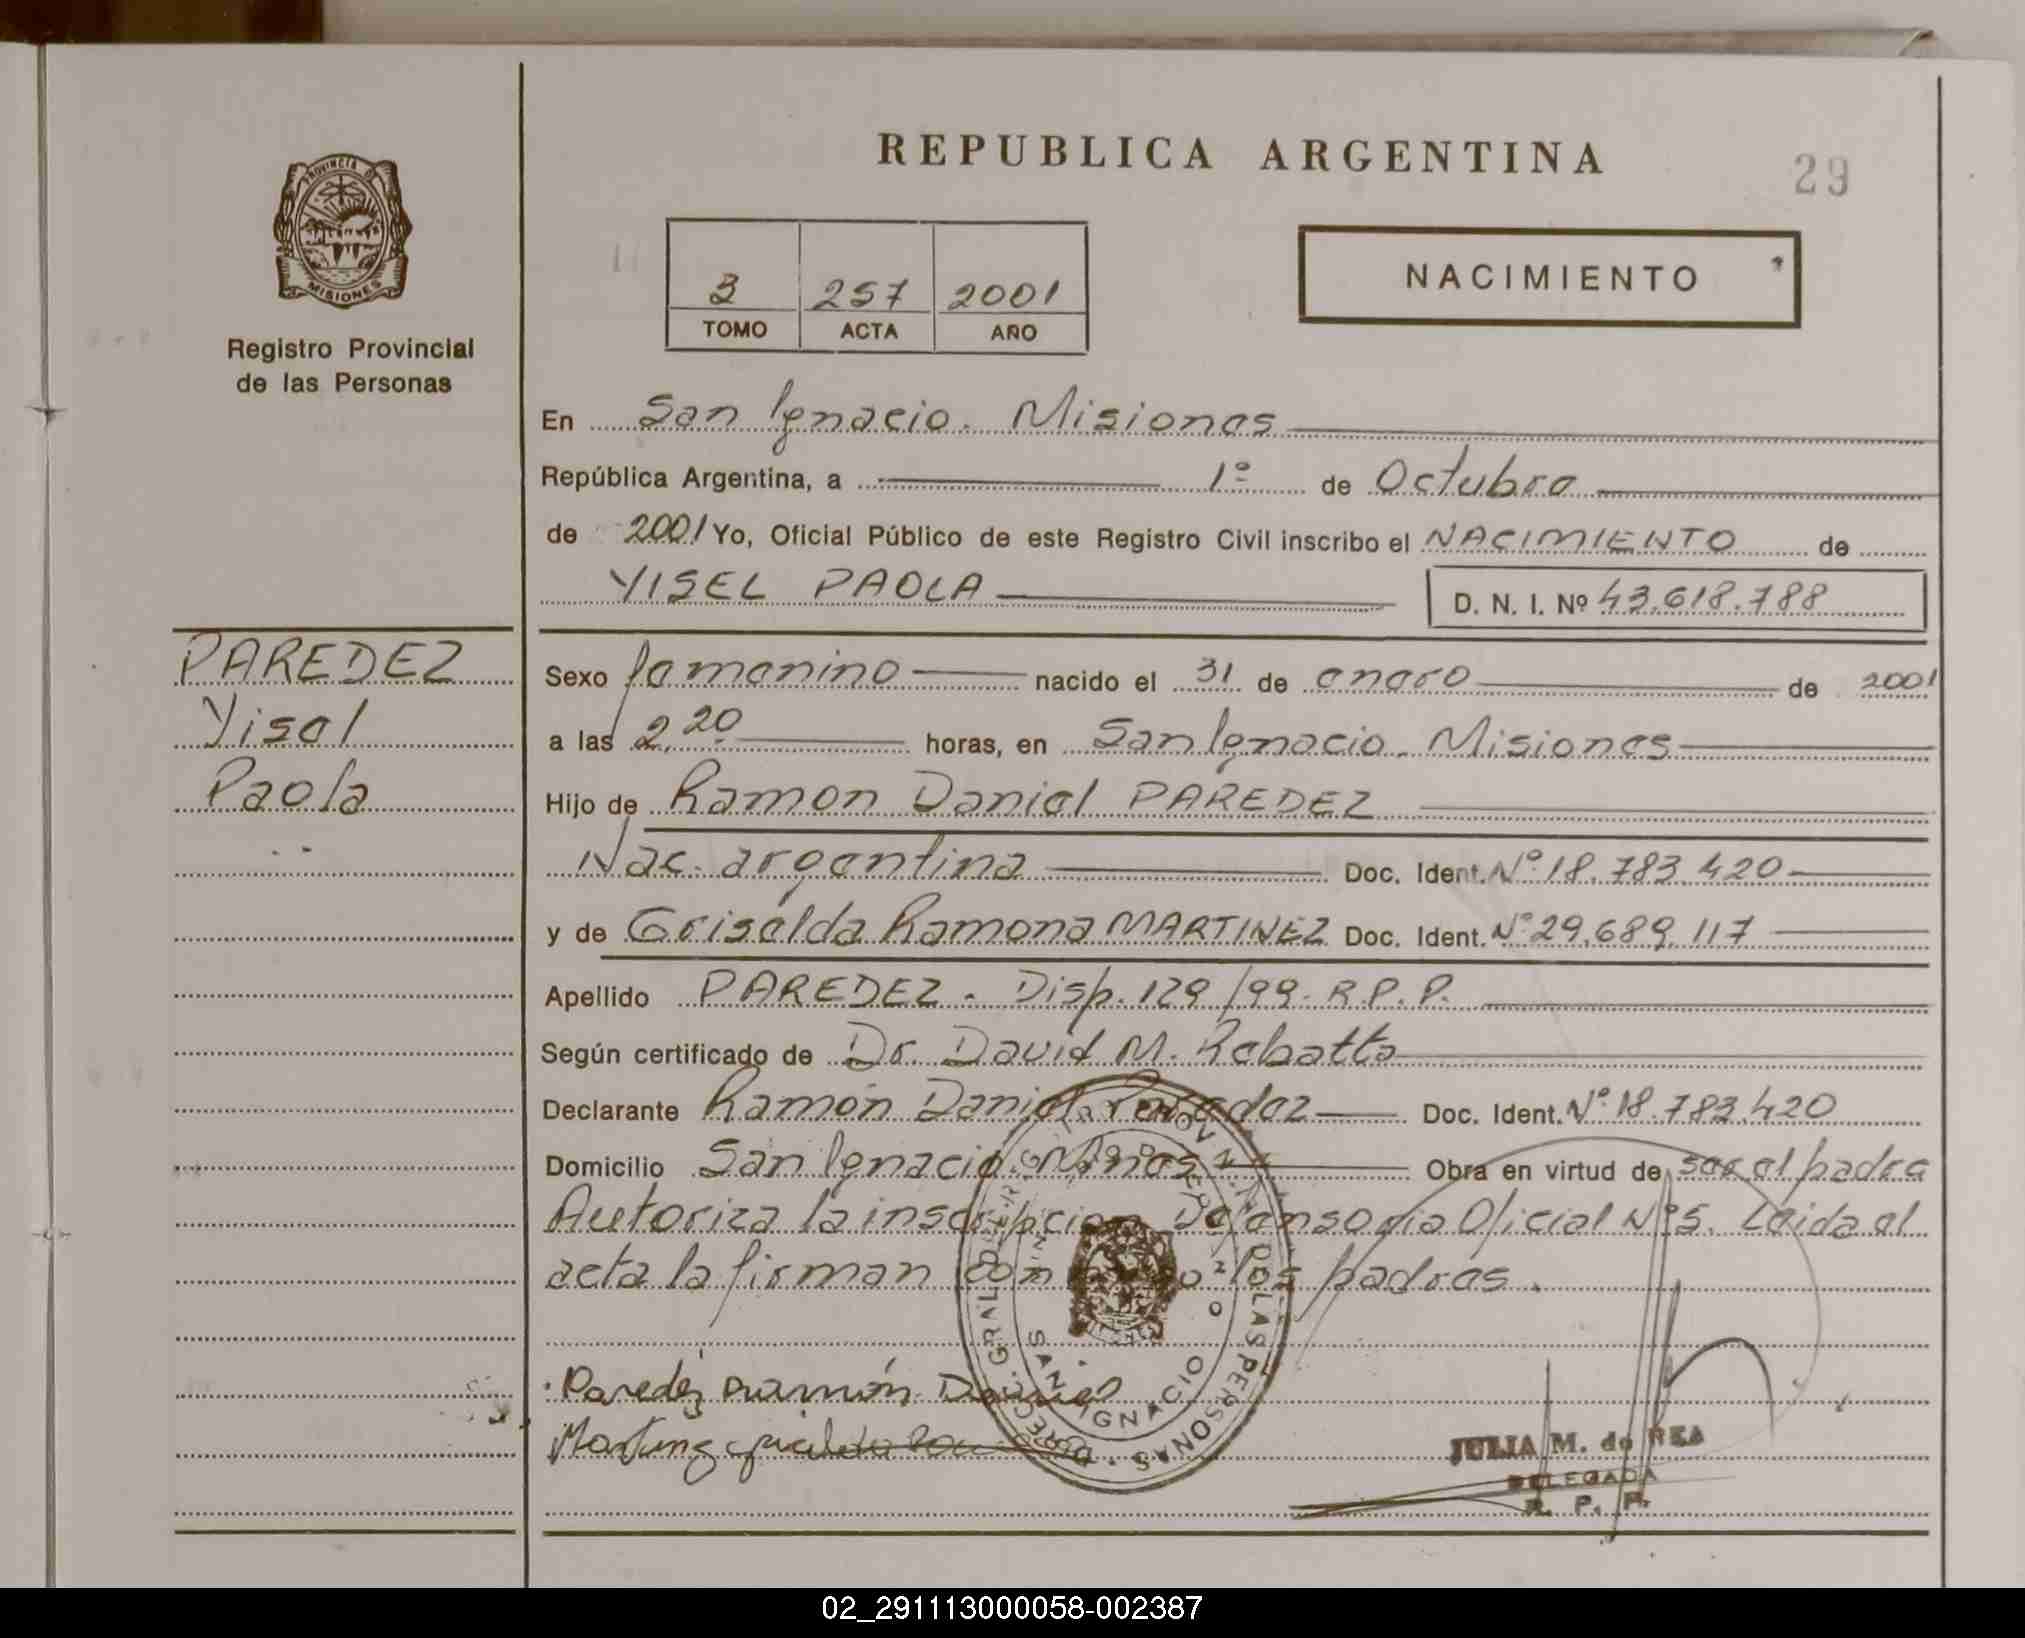 REPUBLICA ARGENTINA
29
PROVINCIA DE
MISIONES
Registro Provincial
de las Personas
3 257 2001
TOMO ACTA AÑO
NACIMIENTO
En San Ignacio. Misiones
República Argentina, a 1º de Octubre
de 2001 Yo, Oficial Público de este Registro Civil inscribo el NACIMIENTO de
YISEL PAOLA
D. N. I. Nº 43.618.788
PAREDEZ
Yisel
Paola
Sexo femenino nacido el 31 de enero de 2001
a las 2.20 horas, en San Ignacio. Misiones
Hijo de Ramon Daniel PAREDEZ
Nac. argentina Doc. Ident. Nº 18.783.420
y de Griselda Ramona MARTINEZ Doc. Ident. Nº 29.689.117
Apellido PAREDEZ. Disp. 129/99. R.P.P.
Según certificado de Dr. David M. Rebatta
Declarante Ramón Daniel Paredez Doc. Ident. Nº 18.783.420
Domicilio San Ignacio. Mnes Obra en virtud de ser el padre
Autoriza la inscripcion Defensoria Oficial Nº 5. Leida el
acta la firman los padres.
Paredez Ramón Daniel
SAN IGNACIO
DE LAS PERSONAS
JULIA M. de REA
DELEGADA
R. P. P.
02_291113000058-002387